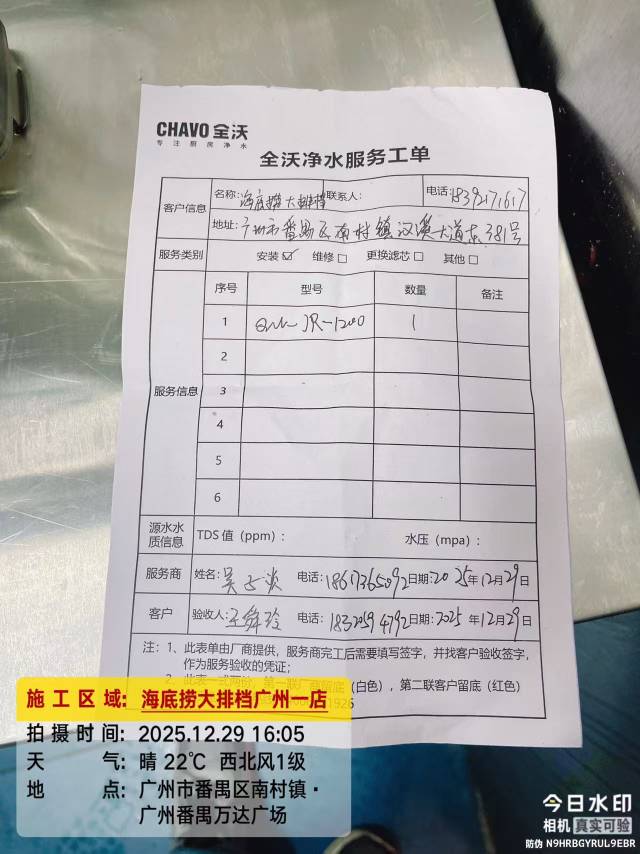 CHAVO 全沃
专注厨房净水
全沃净水服务工单
客户信息
名称: 海底捞大排档 联系人: 电话:
地址: 广州市番禺区南村镇汉溪大道东381号
服务类别 安装☑ 维修□ 更换滤芯□ 其他□
服务信息
序号 型号 数量 备注
1 JR-1200 1
2
3
4
5
6
源水水质信息 TDS 值（ppm）: 水压（mpa）:
服务商 姓名: 吴 电话: 18617365092 日期: 2025年12月29日
客户 验收人: 王舜玲 电话: 18320594792 日期: 2025年12月29日
注: 1、此表单由厂商提供，服务商完工后需要填写签字，并找客户验收签字，
作为服务验收的凭证;
2、此表一式两份，第一联厂商留底（白色），第二联客户留底（红色）
1926
施工区域: 海底捞大排档广州一店
拍摄时间: 2025.12.29 16:05
天气: 晴 22℃ 西北风1级
地点: 广州市番禺区南村镇·
广州番禺万达广场
今日水印
相机 真实可验
防伪 N9HRBGYRUL9EBR